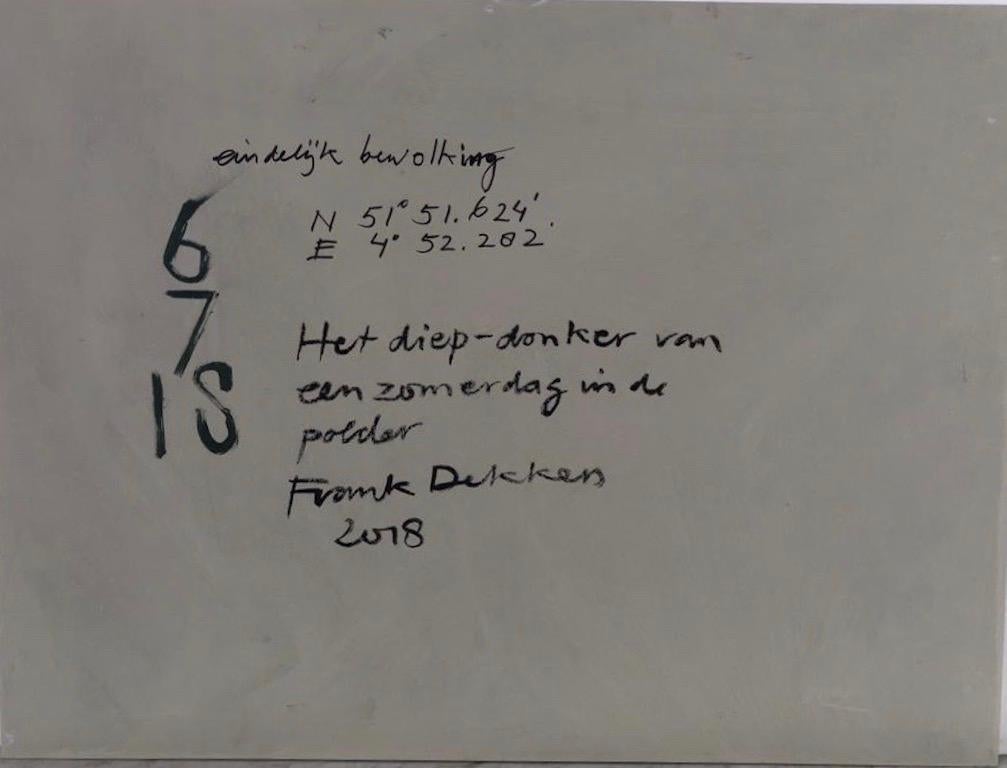 eindelijk bewolking
6
7
18
N 51° 51.624'.
E 4° 52.282
Het diep-donker van
een zomerdag in de
polder
Frank Dekkers
2018